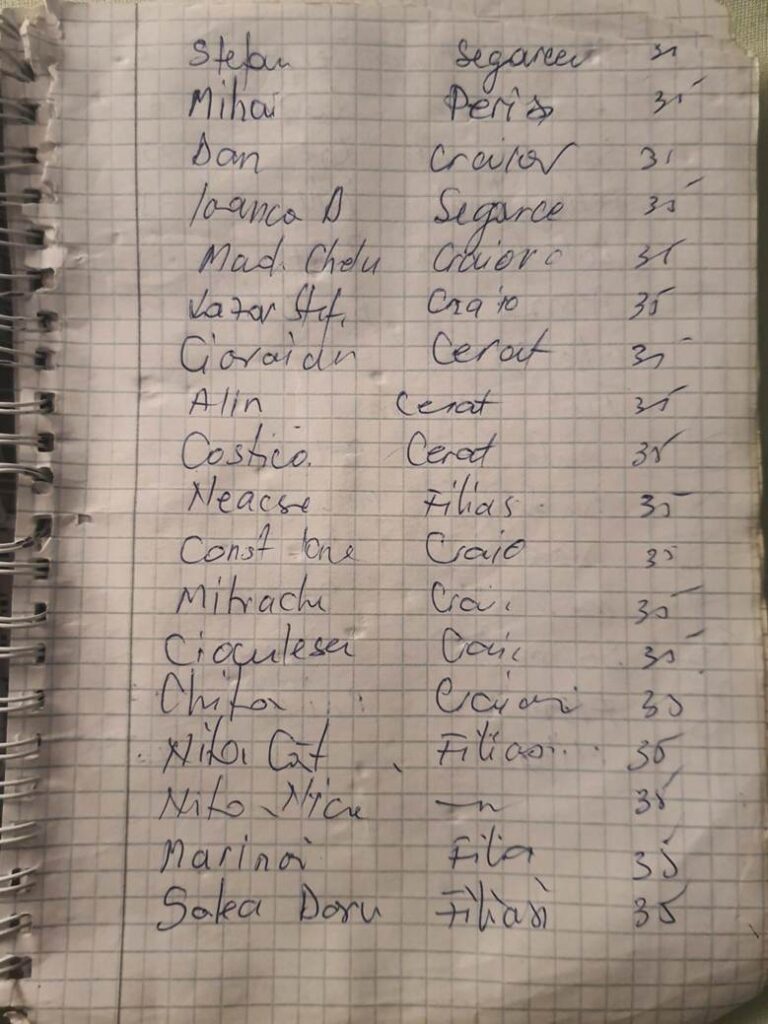 Stefan Segarcea 35
Mihai Peris 35
Dan Craiov 35
Ioanca D Segarce 35
Mad. Chelu Craiova 35
Lazar Stef. Craio 35
Cioroian Cerat 35
Alin Cerat 35
Costico. Cerat 35
Neacse Filias 35
Const Craio 35
Mitrache Crai. 35
Cioculescu Crai 35
Chita Craiov 35
Nita Cat Filiasi 35
Nita Nicu —"— 35
Marinoi Filia 35
Salea Doru Filiasi 35